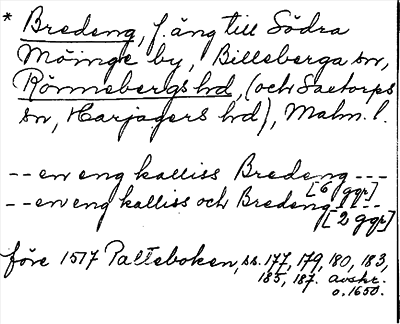 * Bredeng, f. äng till Södra
Möinge by, Billeberga sn,
Rönnebergs hd, (och Saxtorps
sn, Harjagers hd), Malm. l.
-- en eng kalliss Bredeng ---
[6 ggr]
-- en eng kalliss och Bredeng ----
[2 ggr]
före 1517 Palteboken, ss. 177, 179, 180, 183,
185, 187. avskr.
o. 1650.